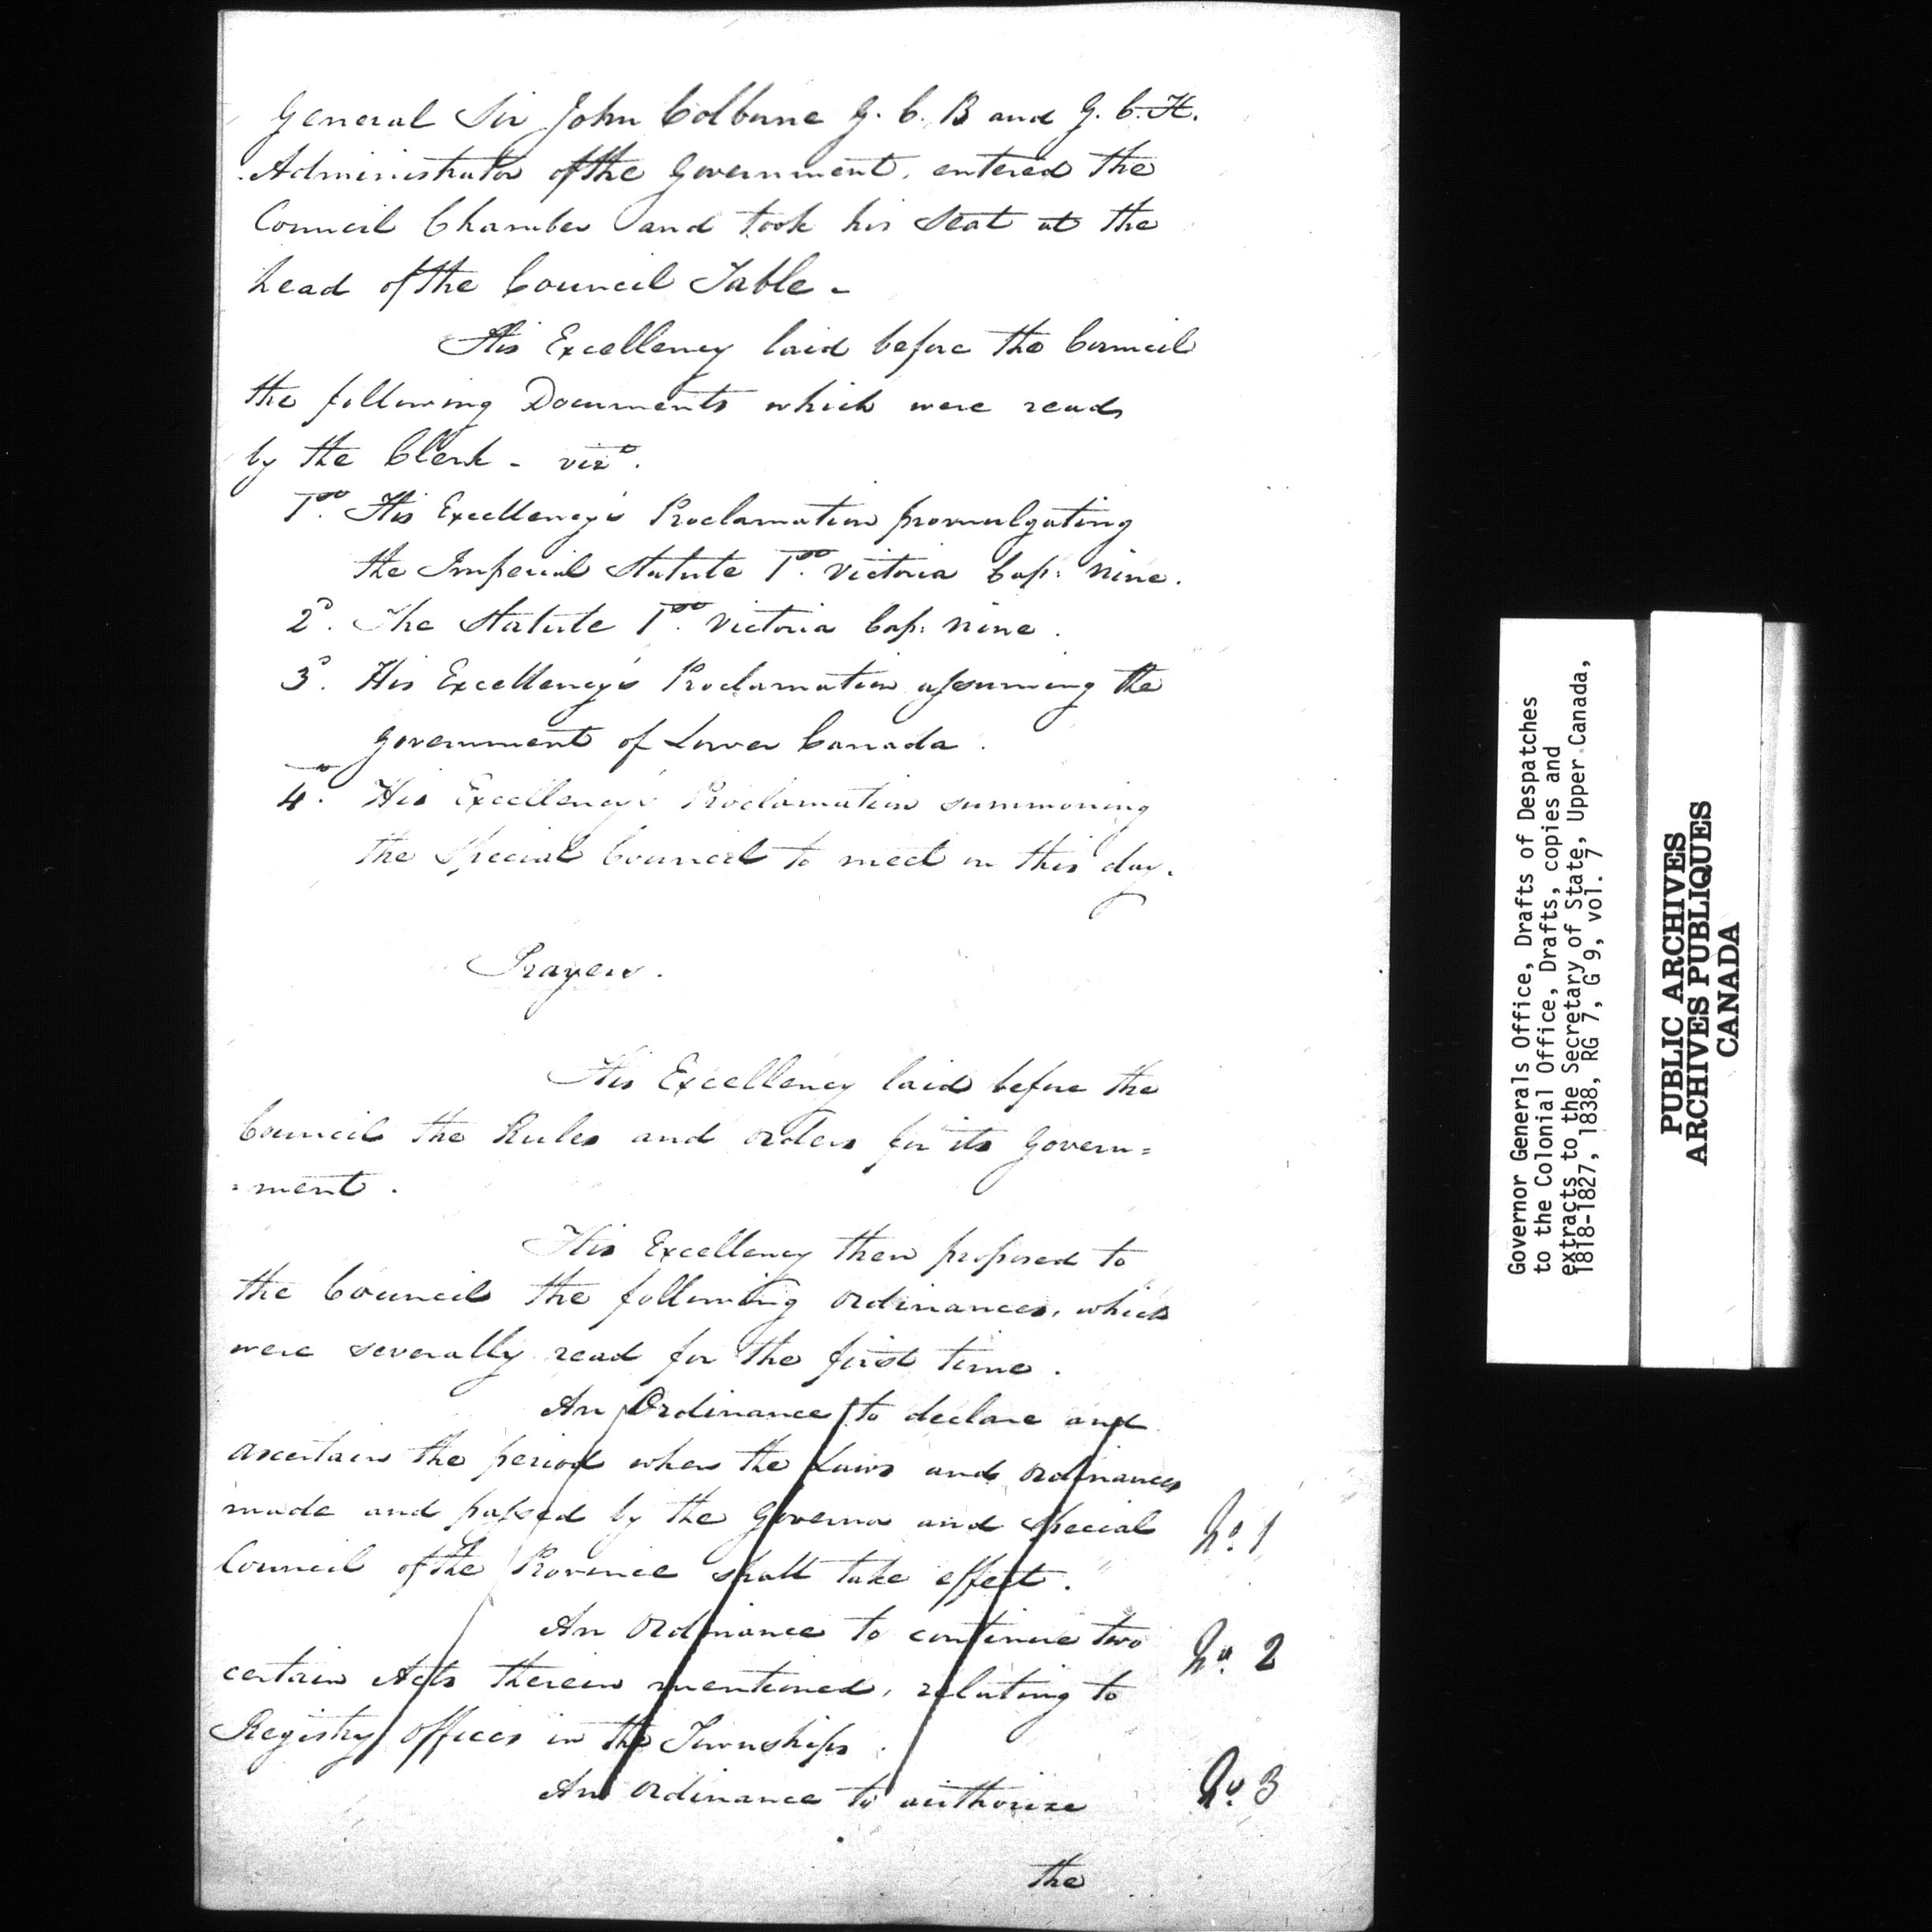 General Sir John Colborne G. C. B and G. C. H.
Administrator of the Government, entered the
Council Chamber and took his seat at the
head of the Council Table -
His Excellency laid before the Council
the following Documents which were read
by the Clerk - vizº.
1mo. His Excellency's Proclamation promulgating
the Imperial Statute 1mo. Victoria Cap: nine.
2º. The Statute 1mo. Victoria Cap: nine.
3º. His Excellency's Proclamation assuming the
Government of Lower Canada.
4º. His Excellency's Proclamation summoning
the Special Council to meet on this day.
Prayers.
His Excellency laid before the
Council the Rules and orders for its Govern=
=ment.
His Excellency then proposed to
the Council the following ordinances, which
were severally read for the first time.
An Ordinance to declare and
ascertain the period when the Laws and ordinances
made and passed by the Governor and Special
Council of the Province shall take effect."
No. 1
An Ordinance to continue two
certain Acts therein mentioned, relating to
Registry offices in the Townships.
No. 2
An ordinance to authorize
No. 3
the
Governor Generals Office, Drafts of Despatches
to the Colonial Office, Drafts, copies and
extracts to the Secretary of State, Upper Canada,
1818-1827, 1838, RG 7, G 9, vol. 7
PUBLIC ARCHIVES
ARCHIVES PUBLIQUES
CANADA